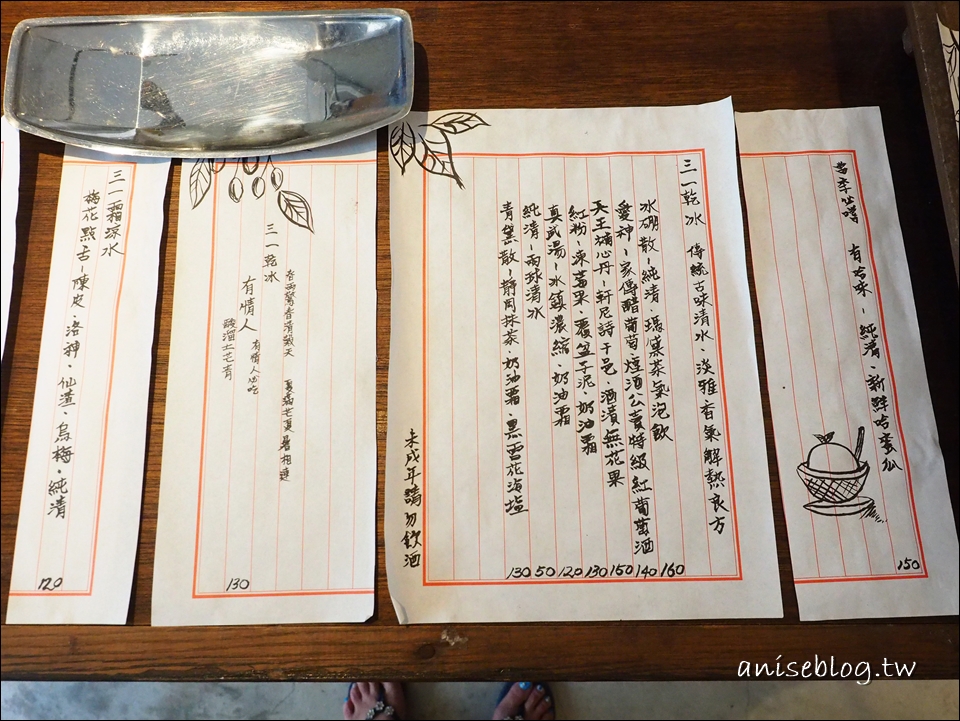 當季壯嚐 有哈味－純清、新鮮哈蜜瓜
150
三一乾冰 傳統古味清水、淡雅香氣解熱良方
冰硼散－純清、環黨蒸氣泡飲
愛神－家傳醋葡萄、煙酒公賣特級紅葡萄酒
天王補心丹－軒尼詩干邑、酒漬無花果
紅粉－凍莓果、覆盆子泥、奶油霜
真武湯－水鎮濃縮、奶油霜
純清－兩球清冰
青黛散－靜岡抹茶、奶油霜、黑雪花海塩
130 50 120 130 150 140 160
未成年請勿飲酒
三一乾冰
春雨驚春清穀天 夏滿芒夏暑相連
有情人 有情人必吃
酸溜土芒青
130
三一霜涼水
梅花點舌－陳皮、洛神、仙渣、烏梅、純清
120
aniseblog.tw